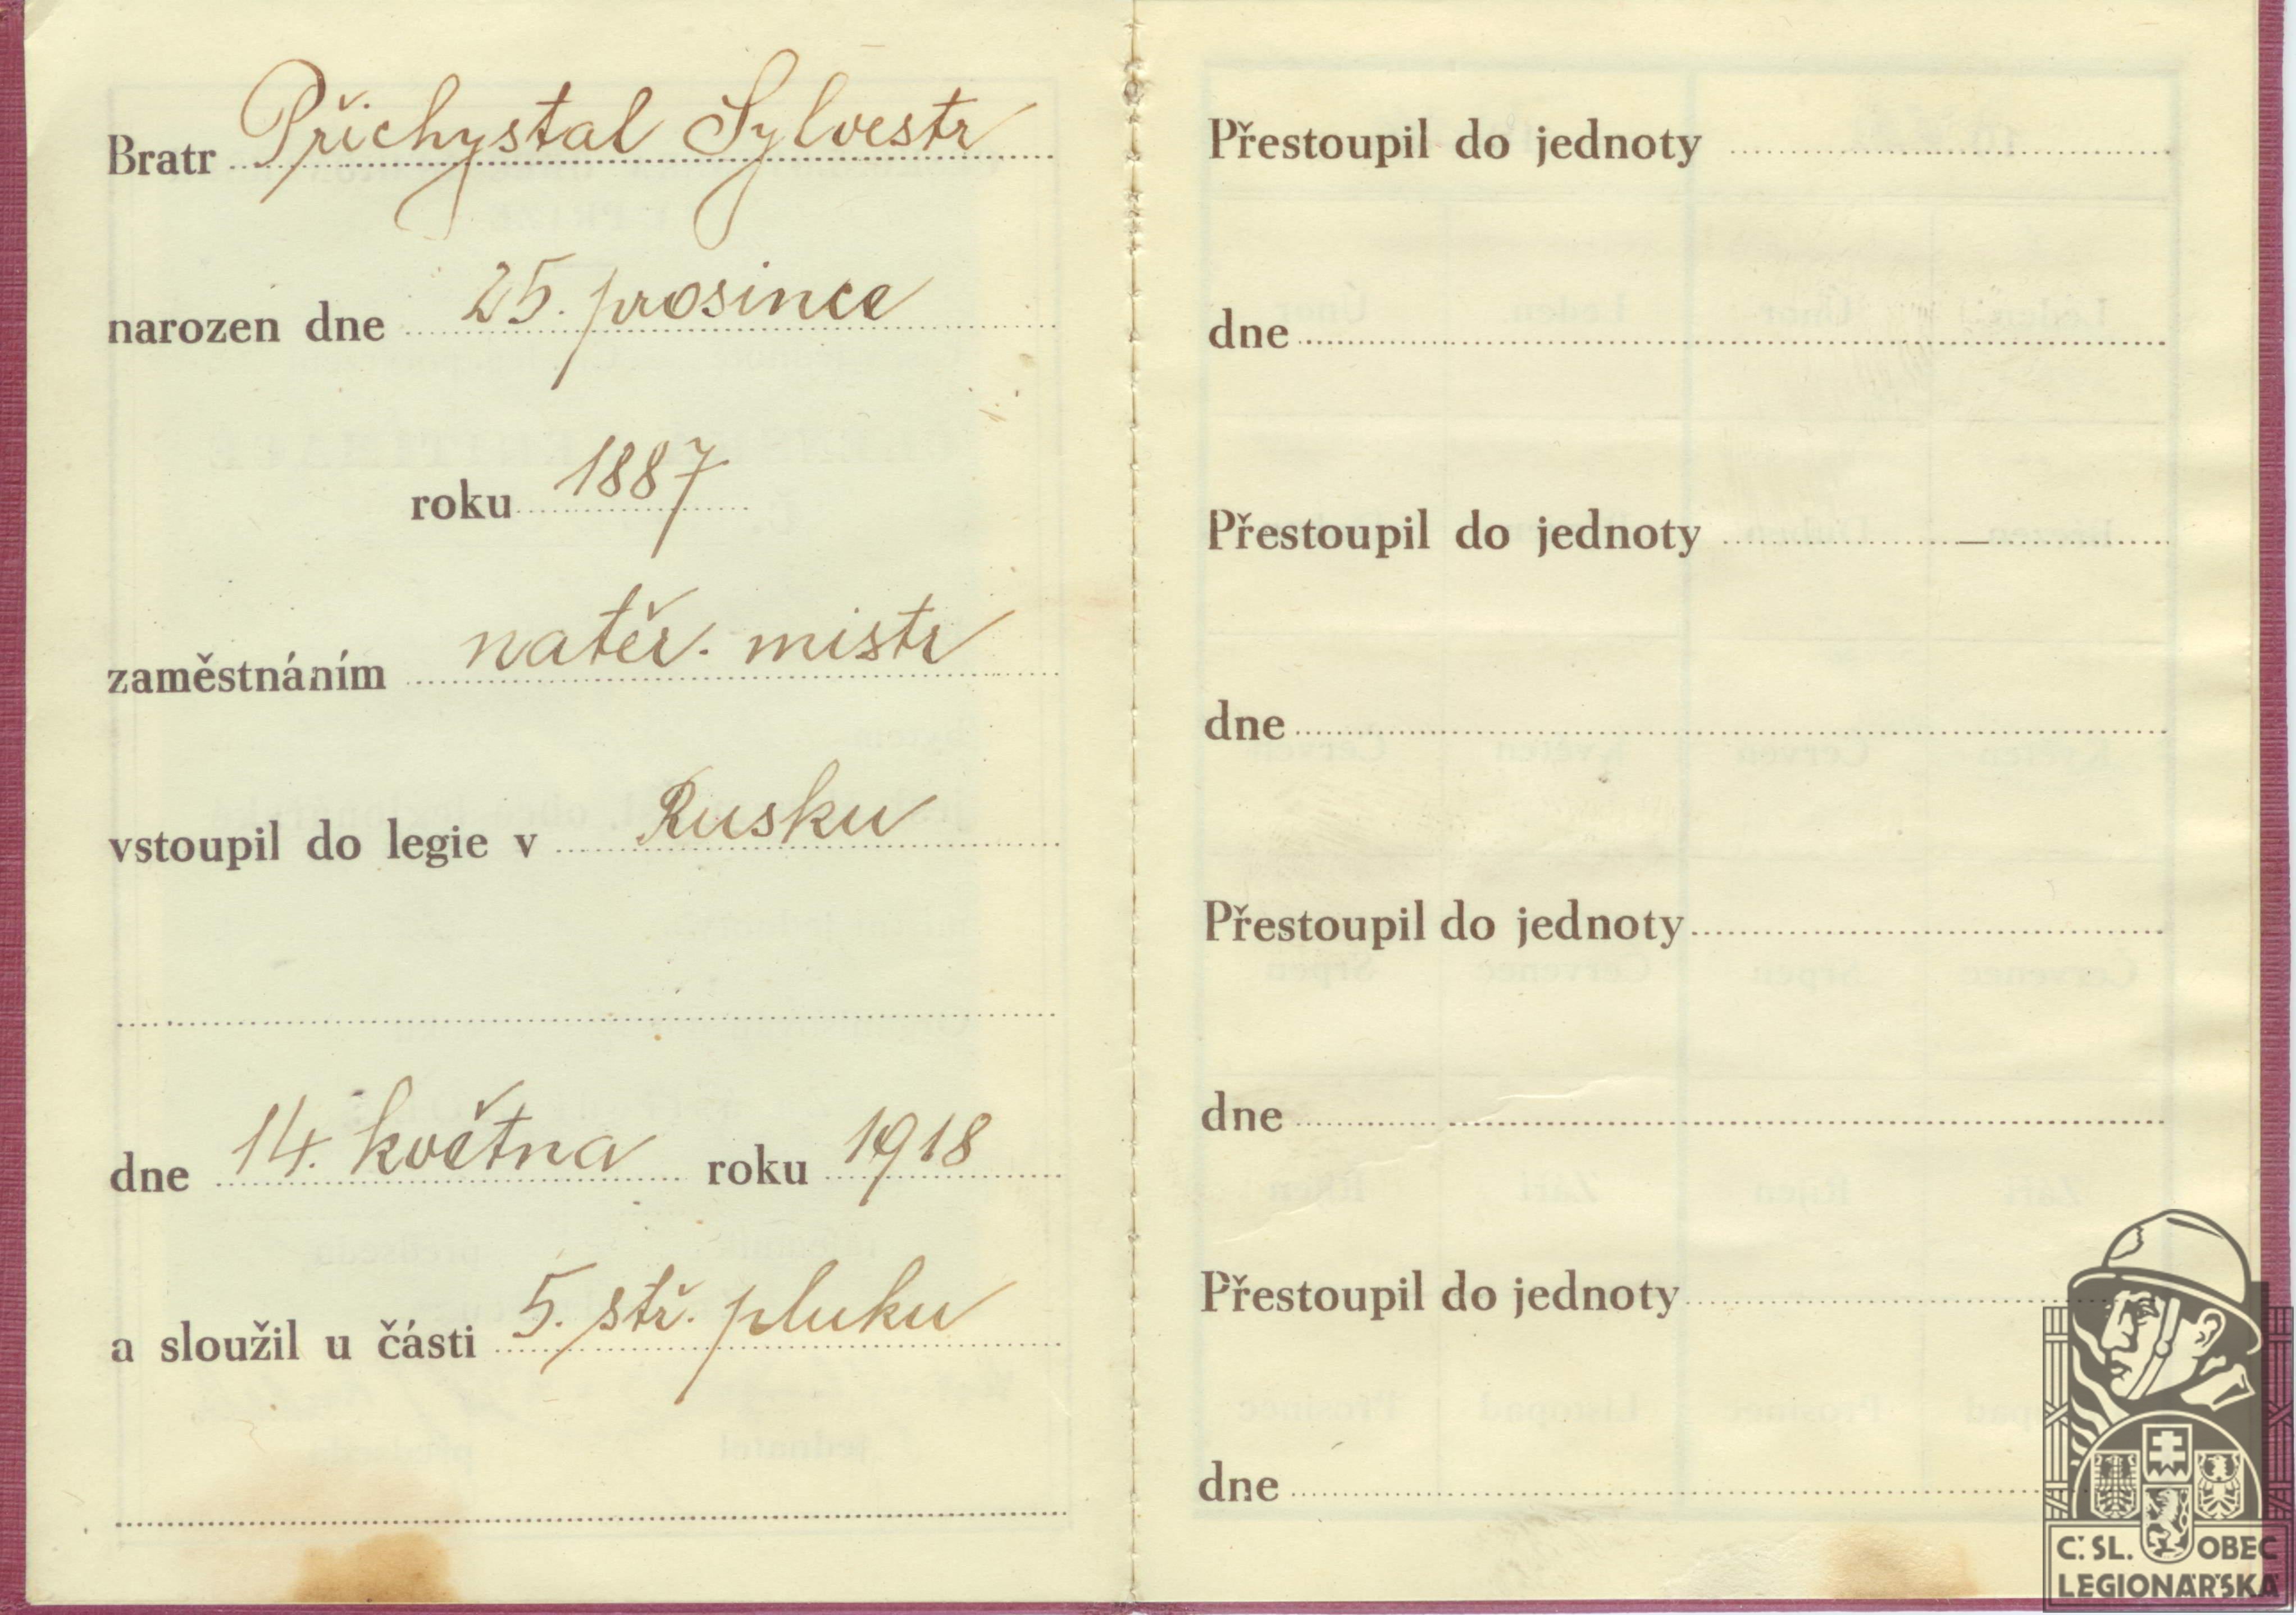 Bratr Přichystal Sylvestr
narozen dne 25. prosince
roku 1887
zaměstnáním natěr. mistr
vstoupil do legie v Rusku
dne 14. května roku 1918
a sloužil u části 5. stř. pluku
Přestoupil do jednoty
dne
Přestoupil do jednoty
dne
Přestoupil do jednoty
dne
Přestoupil do jednoty
dne
Č. SL. OBEC
LEGIONÁŘSKÁ